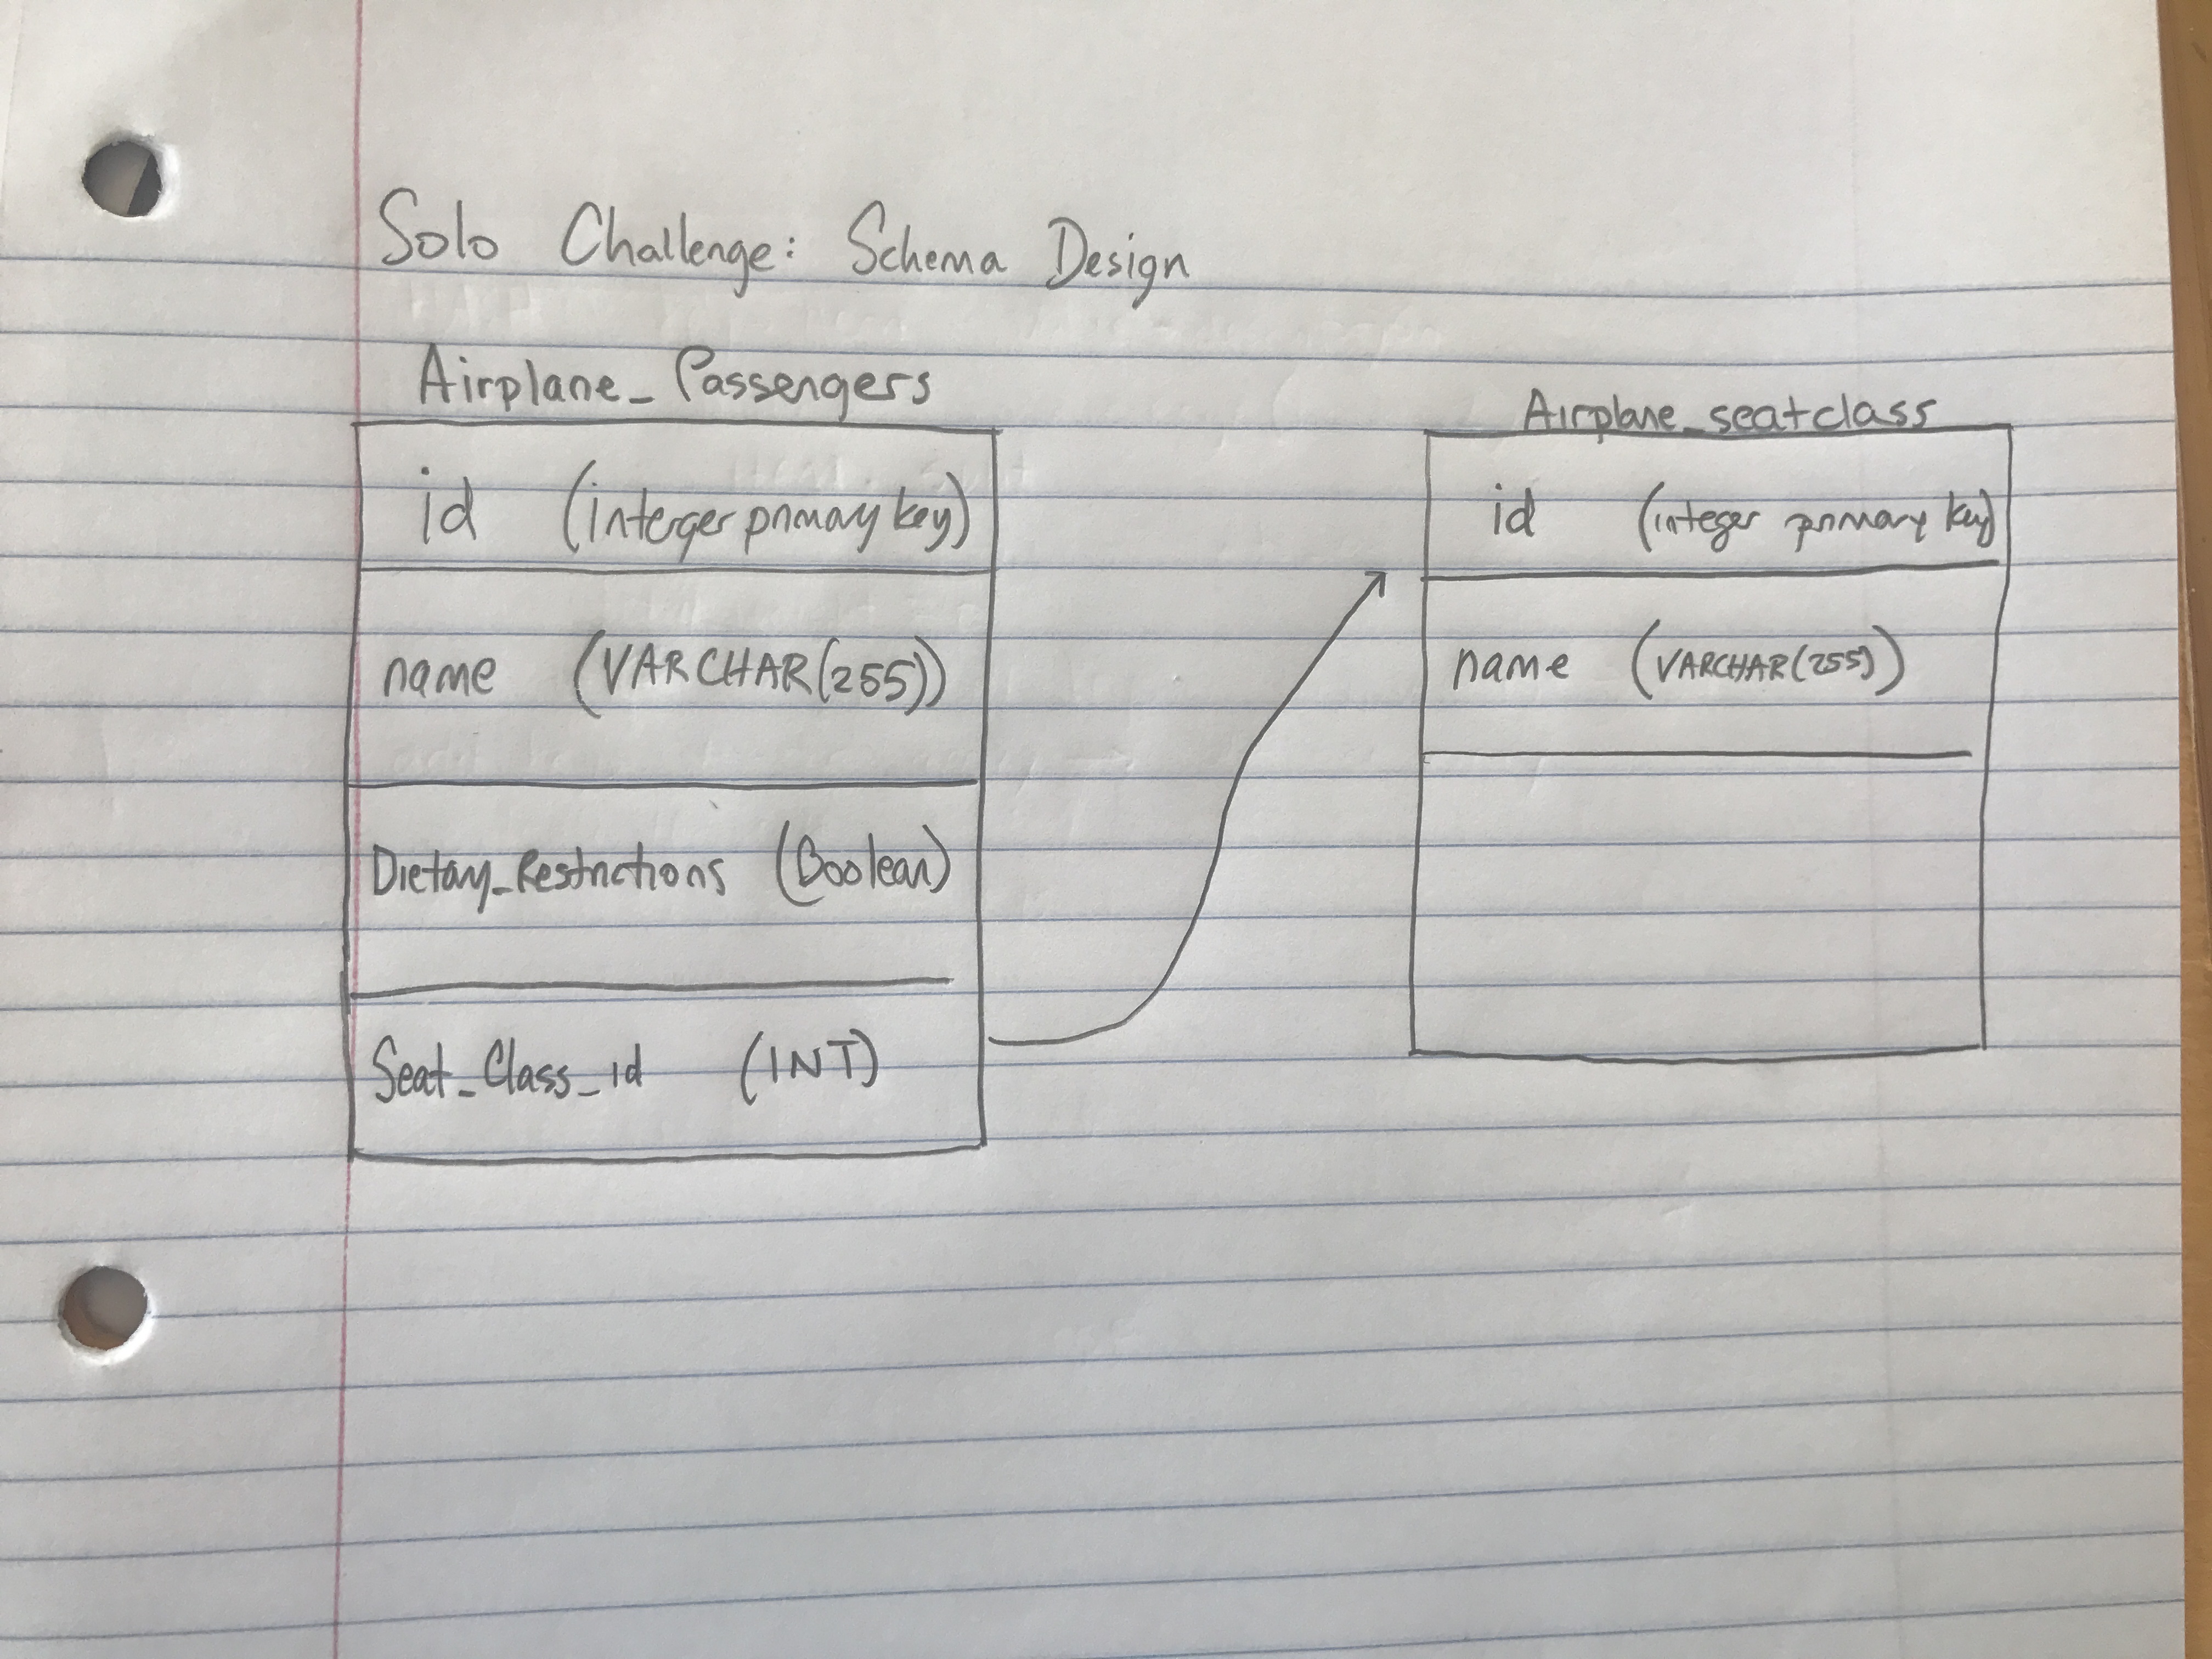 Solo Challenge: Schema Design
Airplane_Passengers
id (interger primary key)
name (VARCHAR(255))
Dietary_Restrictions (Boolean)
Seat_Class_id (INT)
Airplane_seatclass
id (integer primary key)
name (VARCHAR(255))